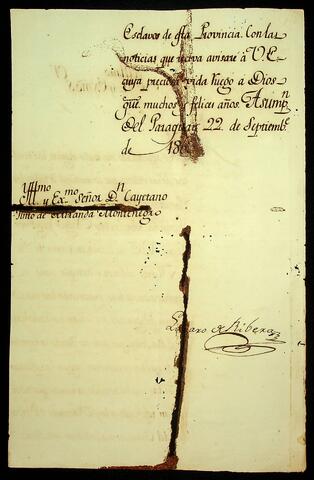 Esclavos de esta Provincia. Con las
noticias que reciva avisare à V.E.
cuya preciosa vida ruego a Dios
gue. muchos y felices años. Asumpn.
del Paraguay 22 de Septiembe.
de
Yllmo. y Exmo. Señor Dn. Cayetano
Pinto de Miranda Montenegro
Lazaro de Ribera